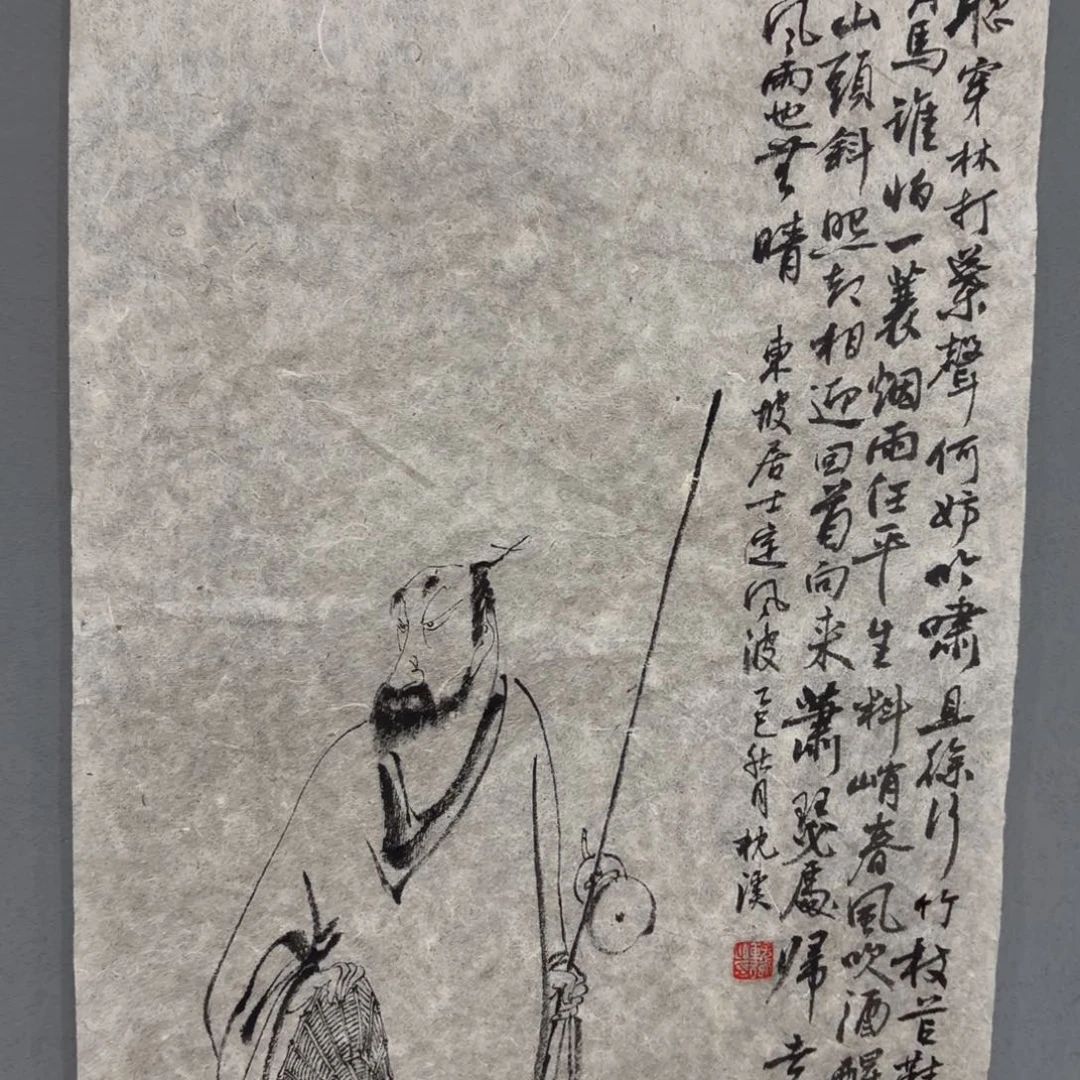 穿林打葉聲何妨吟嘯且徐行竹杖芒鞋
馬誰怕一蓑烟雨任平生料峭春風吹酒醒
山頭斜照却相迎回首向来蕭瑟處歸去
風雨也無晴 東坡居士定風波 乙巳秋月枕溪